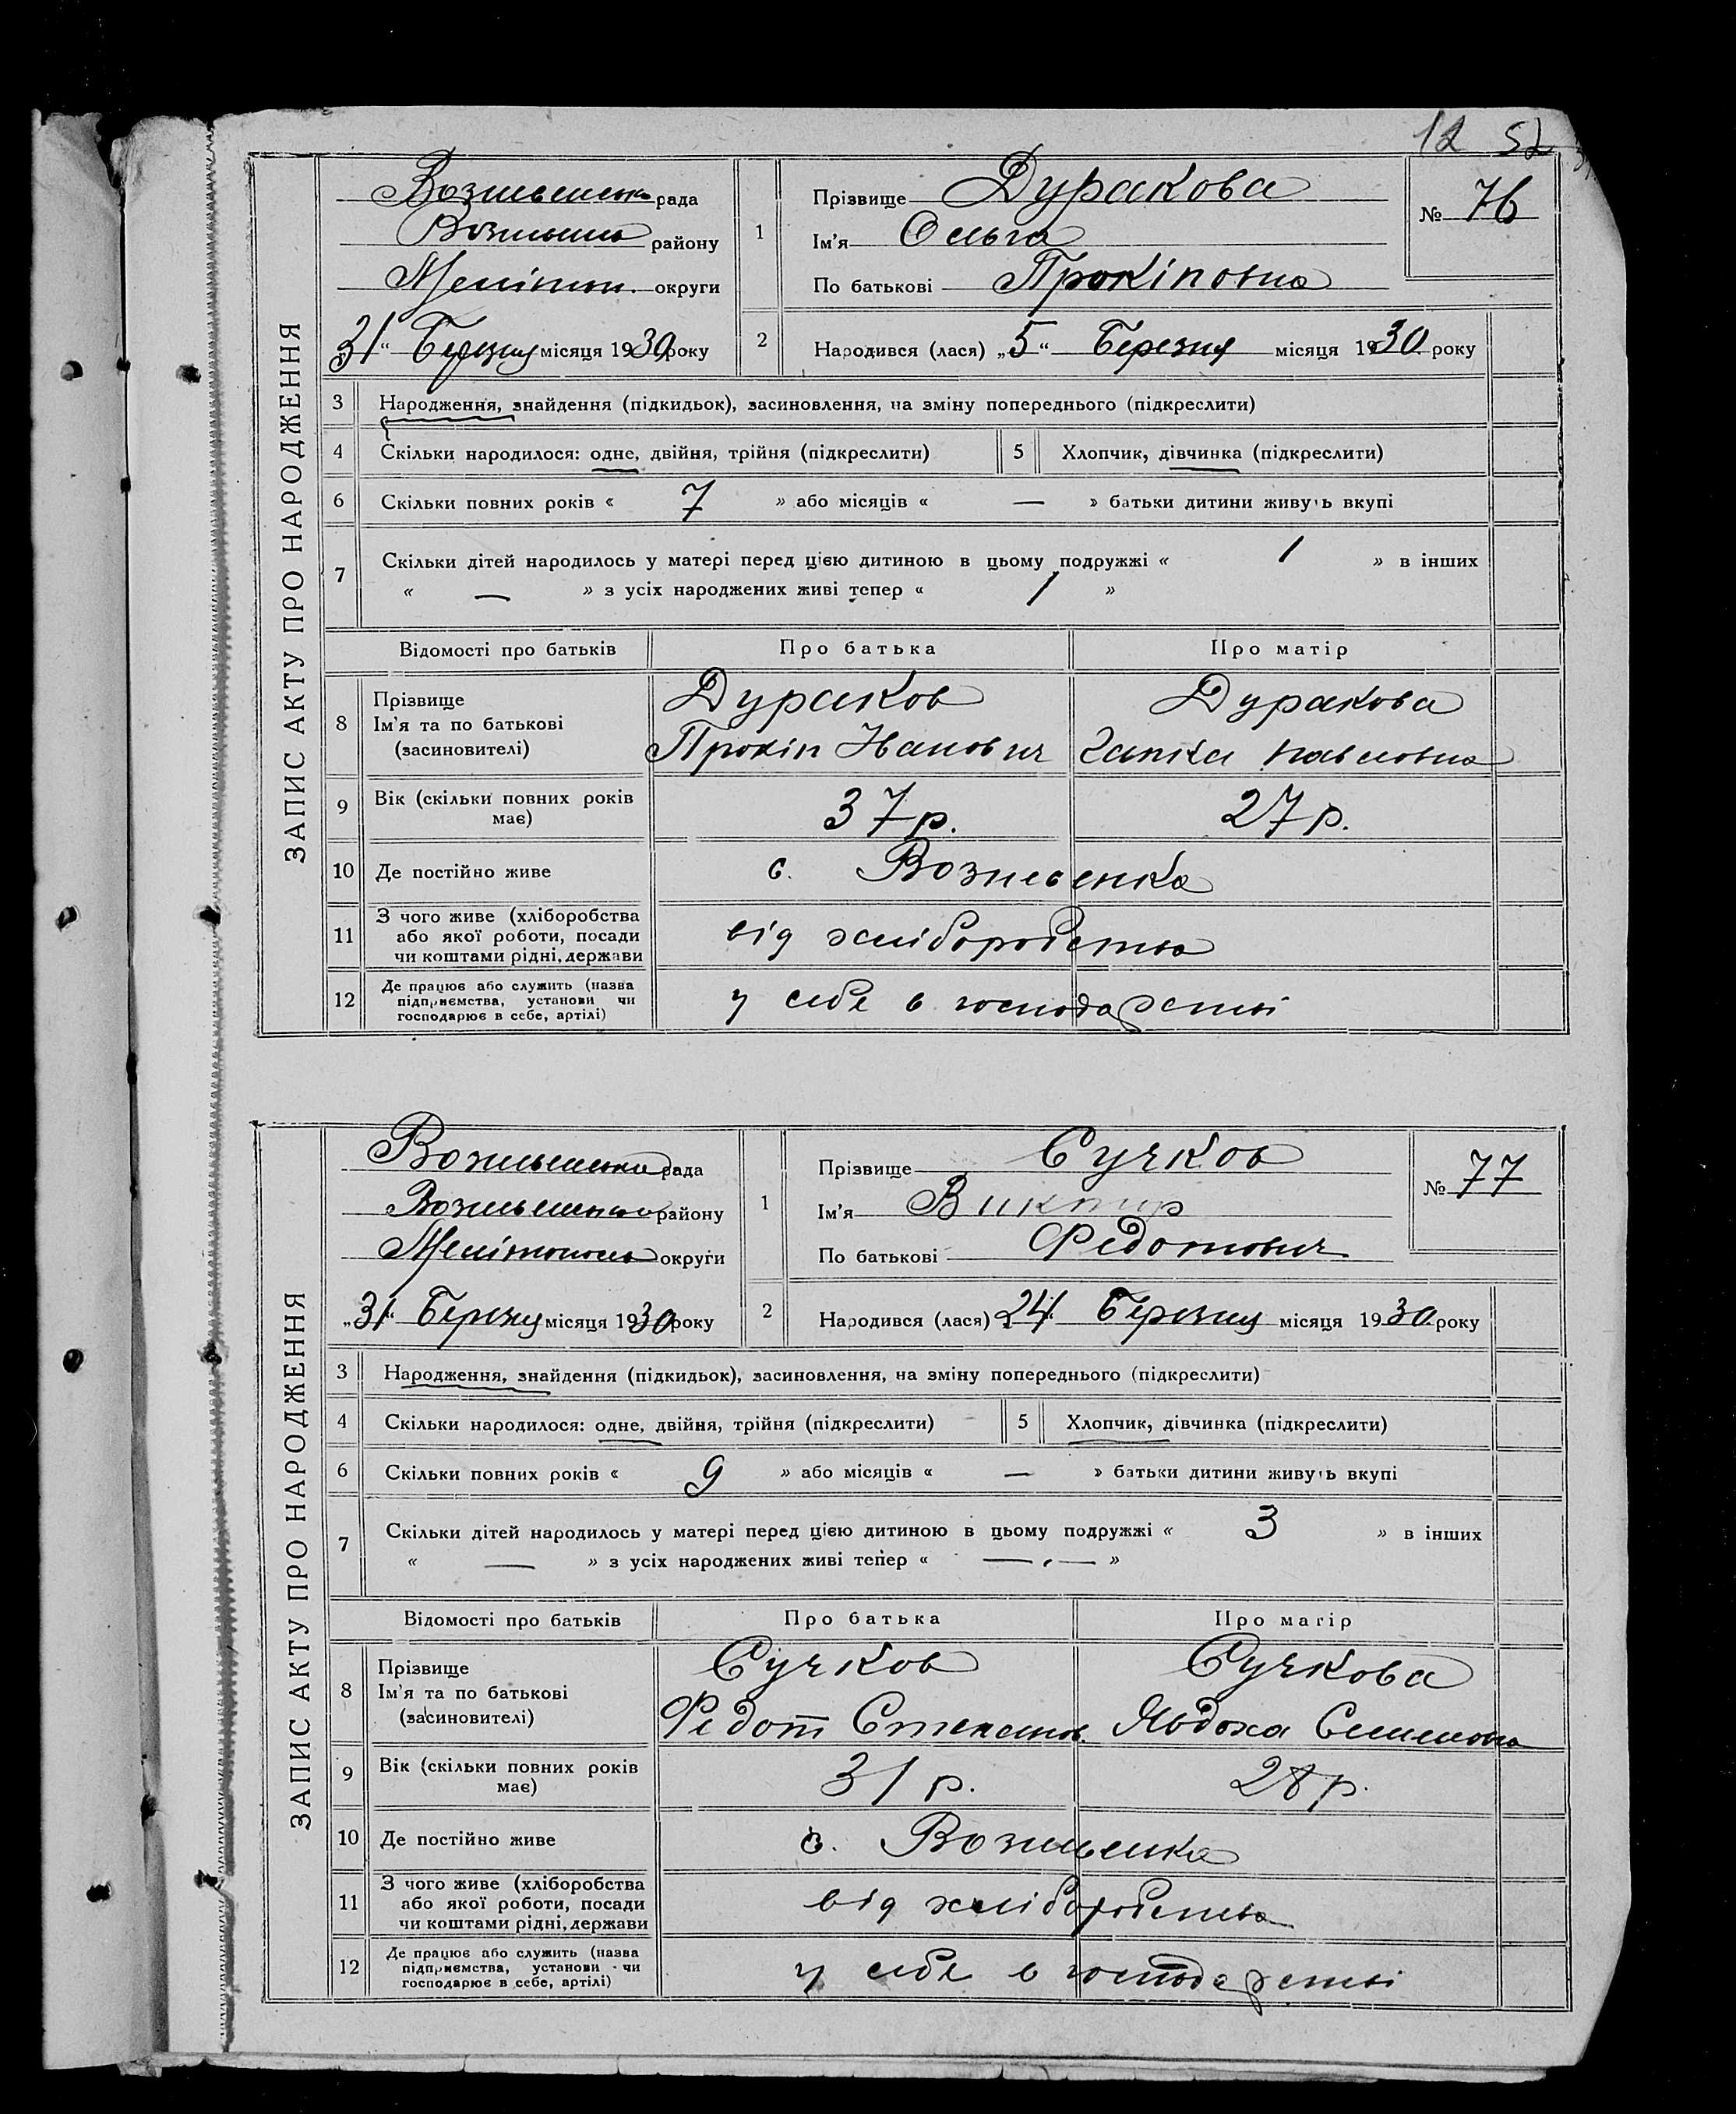 12 52
ЗАПИС АКТУ ПРО НАРОДЖЕННЯ
Вознесенська рада
Вознесен району
Мелітоп. округи
„31“ Березня місяця 1930 року
1
Прізвище Дуракова
Ім'я Ольга
По батькові Прокіповна
№ 76
2
Народився (лася) „5“ Березня місяця 1930 року
3 Народження, знайдення (підкидьок), засиновлення, на зміну попереднього (підкреслити)
4 Скільки народилося: одне, двійня, трійня (підкреслити) 5 Хлопчик, дівчинка (підкреслити)
6 Скільки повних років « 7 » або місяців « — » батьки дитини живуть вкупі
7 Скільки дітей народилось у матері перед цією дитиною в цьому подружжі « 1 » в інших
« — » з усіх народжених живі тепер « 1 »
Відомості про батьків Про батька Про матір
8 Прізвище
Ім'я та по батькові
(засиновителі)
Дураков Дуракова
Прокіп Іванович Гапка Павловна
9 Вік (скільки повних років
має)
37 р. 27 р.
10 Де постійно живе с. Вознесенка
11 З чого живе (хліборобства
або якої роботи, посади
чи коштами рідні, держави
від хліборобства
12 Де працює або служить (назва
підприємства, установи чи
господарює в себе, артілі)
у себе в господарстві
ЗАПИС АКТУ ПРО НАРОДЖЕННЯ
Вознесенська рада
Вознесенського району
Мелітополь округи
„31“ Березня місяця 1930 року
1
Прізвище Сучков
Ім'я Виктор
По батькові Федотович
№ 77
2
Народився (лася) 24 Березня місяця 1930 року
3 Народження, знайдення (підкидьок), засиновлення, на зміну попереднього (підкреслити)
4 Скільки народилося: одне, двійня, трійня (підкреслити) 5 Хлопчик, дівчинка (підкреслити)
6 Скільки повних років « 9 » або місяців « — » батьки дитини живуть вкупі
7 Скільки дітей народилось у матері перед цією дитиною в цьому подружжі « 3 » в інших
« — » з усіх народжених живі тепер « — . — »
Відомості про батьків Про батька Про матір
8 Прізвище
Ім'я та по батькові
(засиновителі)
Сучков Сучкова
Федот Степанов. Явдоха Семеновна
9 Вік (скільки повних років
має)
31 р. 28 р.
10 Де постійно живе с. Вознесенка
11 З чого живе (хліборобства
або якої роботи, посади
чи коштами рідні, держави
від хліборобства
12 Де працює або служить (назва
підприємства, установи чи
господарює в себе, артілі)
у себе в господарстві